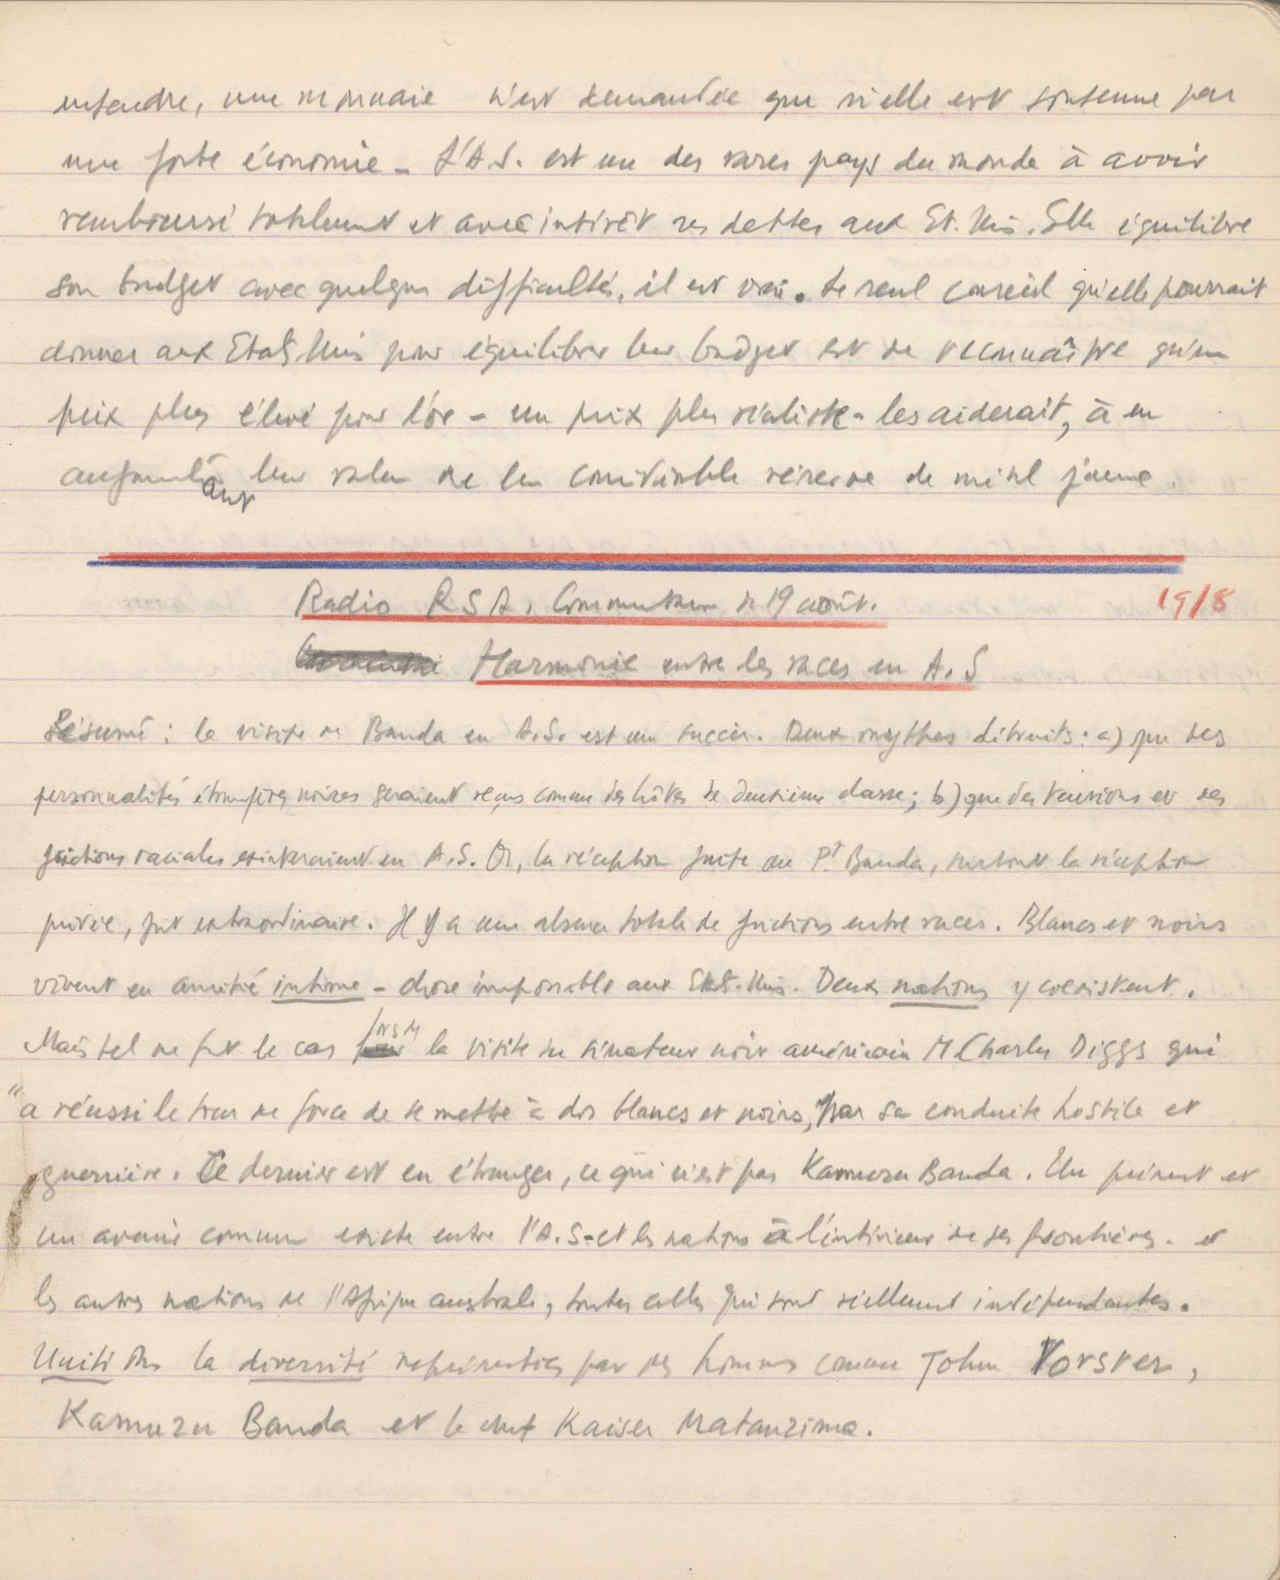 entendre, une monnaie n'est demandée que si elle est soutenue par
une forte économie - L'A.S. est un des rares pays du monde à avoir
remboursé totalement et avec intérêt ses dettes aux Et. Unis. Elle équilibre
son budget avec quelques difficultés, il est vrai. Le seul conseil qu'elle pourrait
donner aux Etats Unis pour équilibrer leur budget est de reconnaître qu'un
prix plus élevé pour l'or - un prix plus réaliste - les aiderait, à en
augmentant leur valeur de leur considérable réserve de métal jaune.
Radio RSA, Commentaire du 19 août. 19/8
Harmonie entre les races en A.S
Résumé : la visite de Banda en A.S. est un succès. Deux mythes détruits : a) que des
personnalités étrangères noires seraient reçues comme des hôtes de deuxième classe ; b) que des tensions et des
frictions raciales existeraient en A.S. Or, la réception faite au Pt Banda, surtout la réception
privée, fut extraordinaire. Il y a une absence totale de frictions entre races. Blancs et noirs
vivent en amitié intime - chose impossible aux Etats-Unis. Deux nations y coexistent.
Mais tel ne fut le cas lors de la visite du sénateur noir américain M Charles Diggs qui
"a réussi le tour de force de se mettre à dos blancs et noirs, par sa conduite hostile et
guerrière. Ce dernier est un étranger, ce qui n'est pas Kamuzu Banda. Un présent et
un avenir commun existe entre l'A.S. et les nations à l'intérieur de ses frontières - et
les autres nations de l'Afrique australe, toutes celles qui sont réellement indépendantes.
Unité dans la diversité représentées par des hommes comme John Vorster,
Kamuzu Banda et le chef Kaiser Matanzima.